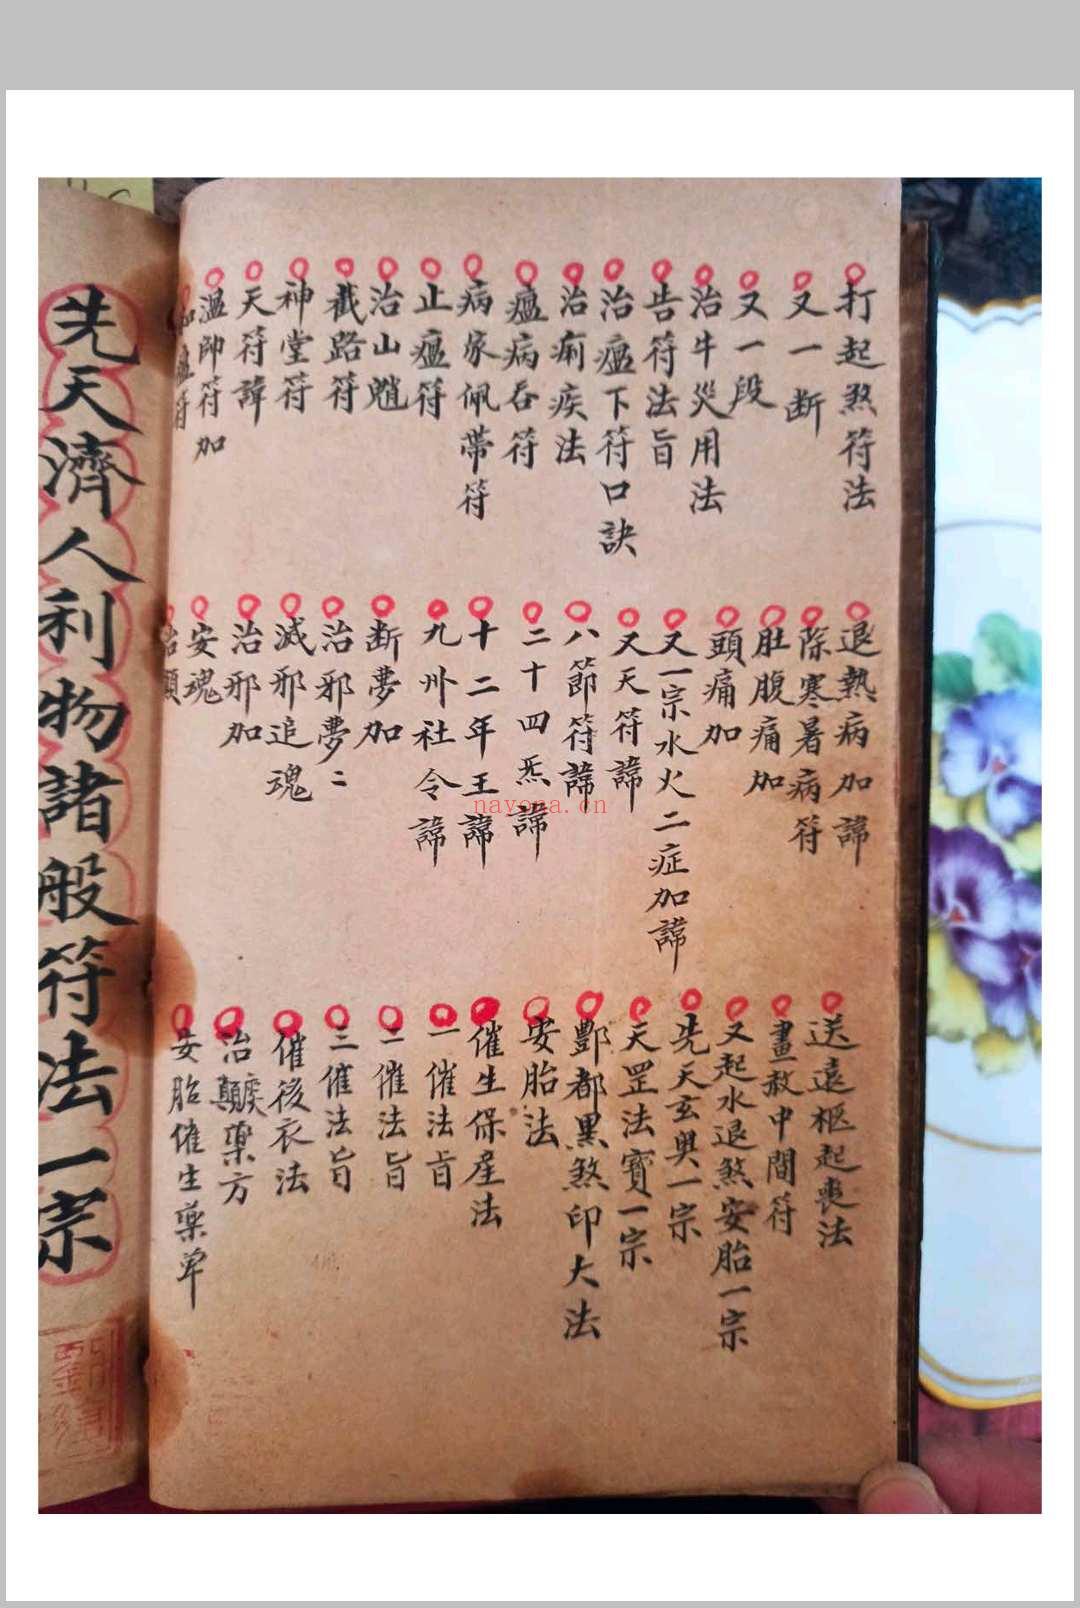 打起煞符法
又一断
又一段
治牛災用法
告符法旨
治瘟下符口訣
治痢疾法
瘟病吞符
病家佩帶符
止瘟符
治山魈
截路符
神堂符
天符諱
溫帥符加
加瘟符
退熱病加諱
除寒暑病符
肚腹痛加
頭痛加
又一宗水火二症加諱
又天符諱
八節符諱
二十四炁諱
十二年王諱
九州社令諱
断夢加
治邪夢二
滅邪追魂
治邪加
安魂
治顛
送遠柩起喪法
畫赦中間符
又起水退煞安胎一宗
先天玄奥一宗
天罡法寶一宗
酆都黑煞印大法
安胎法
催生保産法
一催法旨
二催法旨
三催法旨
催後衣法
治顛藥方
安胎催生藥单
先天濟人利物諸般符法一宗
nayona.cn